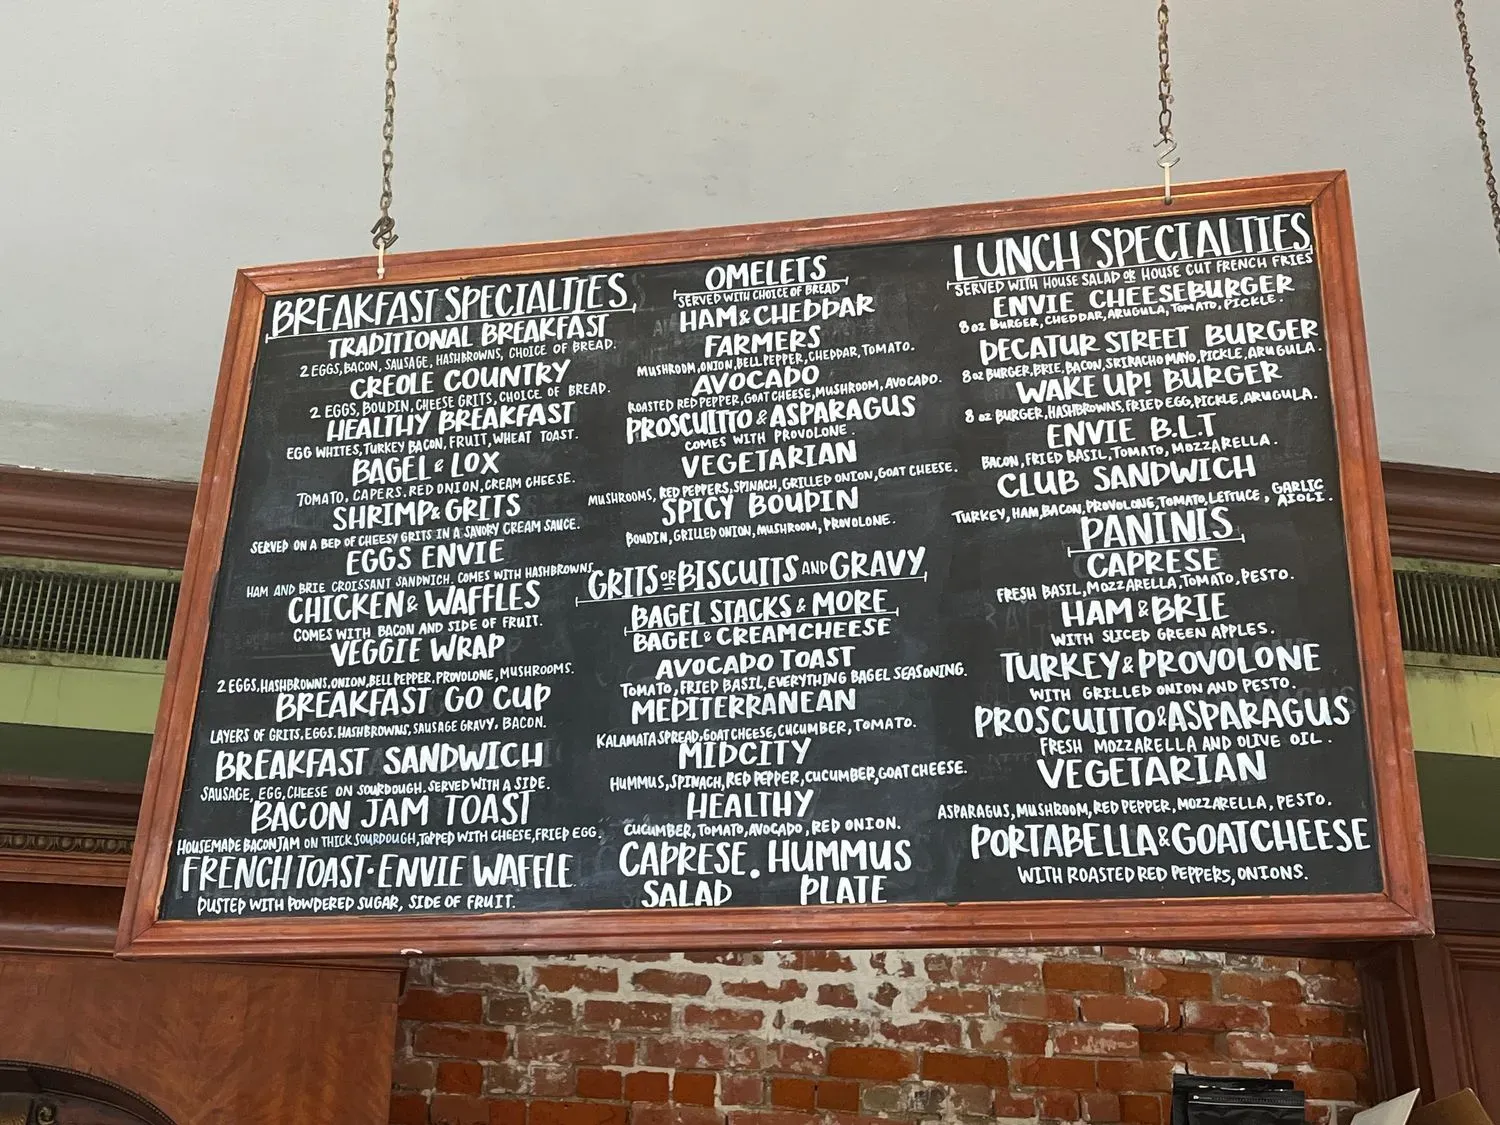 BREAKFAST SPECIALTIES
TRADITIONAL BREAKFAST
2 EGGS, BACON, SAUSAGE, HASHBROWNS, CHOICE OF BREAD.
CREOLE COUNTRY
2 EGGS, BOUDIN, CHEESE GRITS, CHOICE OF BREAD.
HEALTHY BREAKFAST
EGG WHITES, TURKEY BACON, FRUIT, WHEAT TOAST.
BAGEL & LOX
TOMATO, CAPERS, RED ONION, CREAM CHEESE.
SHRIMP & GRITS
SERVED ON A BED OF CHEESY GRITS IN A SAVORY CREAM SAUCE.
EGGS ENVIE
HAM AND BRIE CROISSANT SANDWICH. COMES WITH HASHBROWNS.
CHICKEN & WAFFLES
COMES WITH BACON AND SIDE OF FRUIT.
VEGGIE WRAP
2 EGGS, HASHBROWNS, ONION, BELL PEPPER, PROVOLONE, MUSHROOMS.
BREAKFAST GO CUP
LAYERS OF GRITS, EGGS, HASHBROWNS, SAUSAGE GRAVY, BACON.
BREAKFAST SANDWICH
SAUSAGE, EGG, CHEESE ON SOURDOUGH. SERVED WITH A SIDE.
BACON JAM TOAST
HOUSEMADE BACON JAM ON THICK SOURDOUGH, TOPPED WITH CHEESE, FRIED EGG.
FRENCH TOAST · ENVIE WAFFLE
DUSTED WITH POWDERED SUGAR, SIDE OF FRUIT.
OMELETS
SERVED WITH CHOICE OF BREAD
HAM & CHEDDAR
FARMERS
MUSHROOM, ONION, BELL PEPPER, CHEDDAR, TOMATO.
AVOCADO
ROASTED RED PEPPER, GOAT CHEESE, MUSHROOM, AVOCADO.
PROSCUITTO & ASPARAGUS
COMES WITH PROVOLONE.
VEGETARIAN
MUSHROOMS, RED PEPPERS, SPINACH, GRILLED ONION, GOAT CHEESE.
SPICY BOUDIN
BOUDIN, GRILLED ONION, MUSHROOM, PROVOLONE.
GRITS OR BISCUITS AND GRAVY
BAGEL STACKS & MORE
BAGEL & CREAM CHEESE
AVOCADO TOAST
TOMATO, FRIED BASIL, EVERYTHING BAGEL SEASONING.
MEDITERRANEAN
KALAMATA SPREAD, GOAT CHEESE, CUCUMBER, TOMATO.
MIDCITY
HUMMUS, SPINACH, RED PEPPER, CUCUMBER, GOAT CHEESE.
HEALTHY
CUCUMBER, TOMATO, AVOCADO, RED ONION.
CAPRESE · HUMMUS
SALAD PLATE
LUNCH SPECIALTIES
SERVED WITH HOUSE SALAD OR HOUSE CUT FRENCH FRIES
ENVIE CHEESEBURGER
8 oz BURGER, CHEDDAR, ARUGULA, TOMATO, PICKLE.
DECATUR STREET BURGER
8 oz BURGER, BRIE, BACON, SRIRACHO MAYO, PICKLE, ARUGULA.
WAKE UP! BURGER
8 oz BURGER, HASHBROWNS, FRIED EGG, PICKLE, ARUGULA.
ENVIE B.L.T
BACON, FRIED BASIL, TOMATO, MOZZARELLA.
CLUB SANDWICH
TURKEY, HAM, BACON, PROVOLONE, TOMATO, LETTUCE, GARLIC AIOLI.
PANINIS
CAPRESE
FRESH BASIL, MOZZARELLA, TOMATO, PESTO.
HAM & BRIE
WITH SLICED GREEN APPLES.
TURKEY & PROVOLONE
WITH GRILLED ONION AND PESTO.
PROSCUITTO & ASPARAGUS
FRESH MOZZARELLA AND OLIVE OIL.
VEGETARIAN
ASPARAGUS, MUSHROOM, RED PEPPER, MOZZARELLA, PESTO.
PORTABELLA & GOAT CHEESE
WITH ROASTED RED PEPPERS, ONIONS.